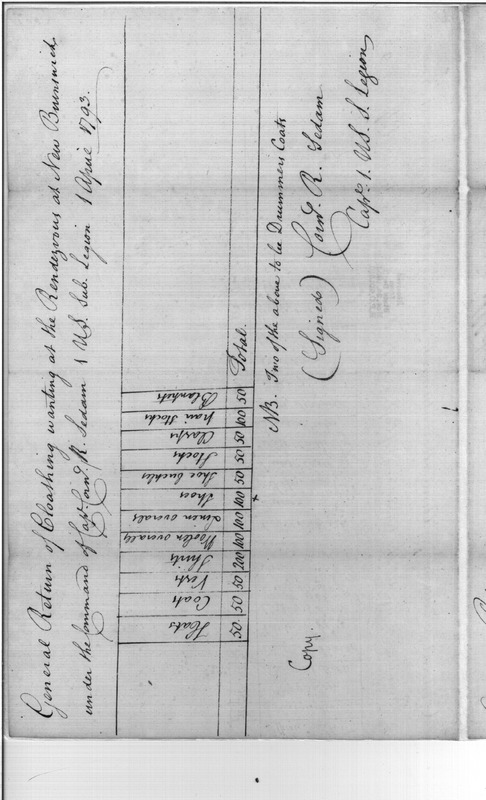 General Return of Cloathing wanting at the Rendezvous at New Brunswick
under the Command of Capt. Cornd. R. Sedam 1 U.S. Sub. Legion 1 April 1793.
Hats Coats Vests Shirts Woolen overalls Linen overalls Shoes Shoe buckles Stocks Clasps pair Stocks Blankets
50. 50 50 200 100 100 100 50 50 50 100 50 Total.
NB. Two of the above to be Drummers Coats
(Signed) Cornd. R. Sedam
Capt. 1. U.S. S. Legion
Copy.